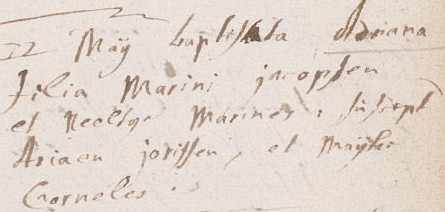 22 Maÿ baptisata Adriana
filia Marini jacopsen
et Neeltge Marines : suscept
Adriaen jorissen, et Maÿke
Corneles.